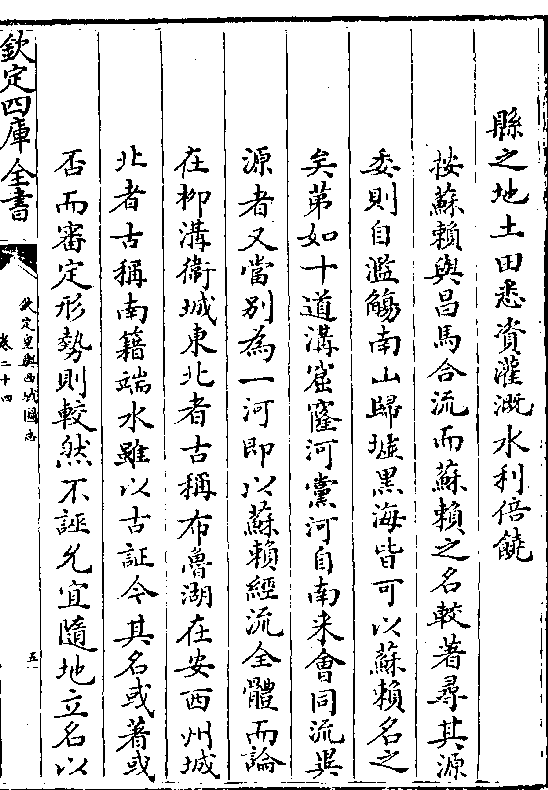 縣之地土田悉資灌溉水利倍饒
按蘇賴與昌馬合流而蘇賴之名較著尋其源
委則自濫觴南山歸墟黑海皆可以蘇賴名之
矣第如十道溝窟窿河黨河自南來會同流異
源者又當別為一河即以蘇賴經流全體而論
在柳溝衛城東北者古稱布魯湖在安西州城
北者古稱南籍端水雖以古証今其名或著或
否而審定形勢則較然不誣允宜隨地立名以
欽定四庫全書
欽定皇輿西域圖志
卷二十四
五